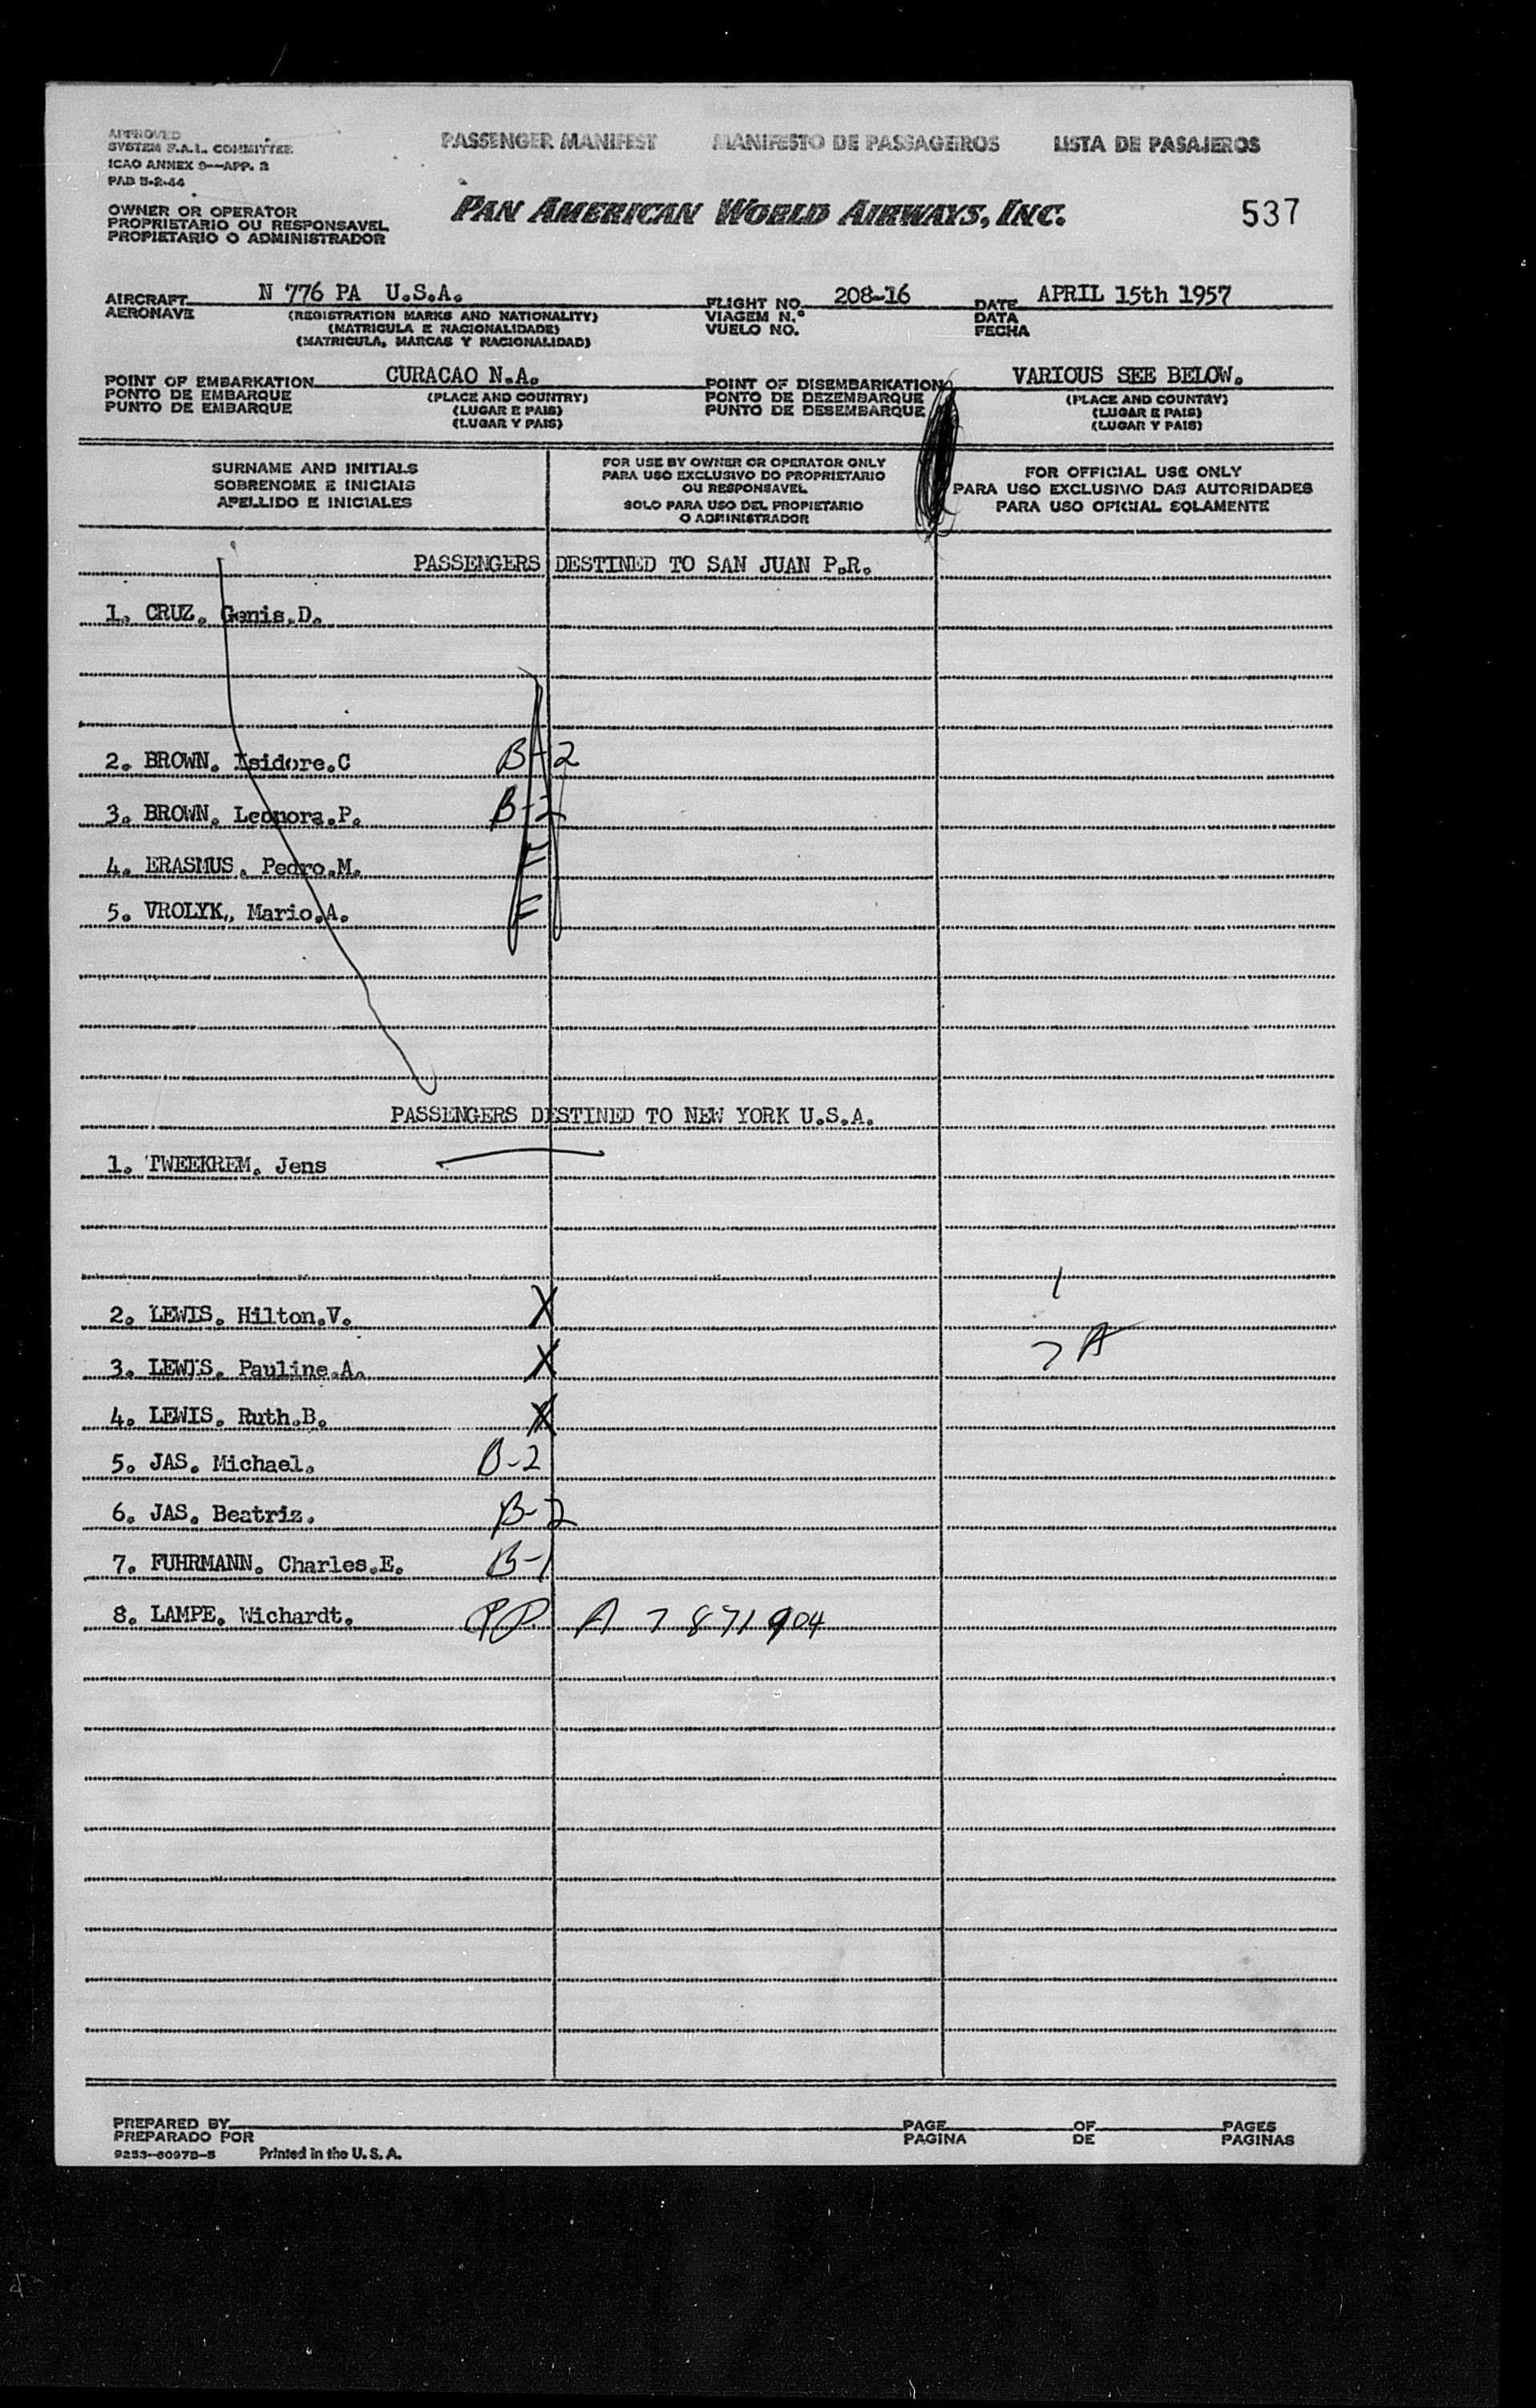 APPROVED
SYSTEM F.A.L. COMMITTEE
ICAO ANNEX 9—APP. 2
PAD 5-2-44
PASSENGER MANIFEST MANIFESTO DE PASSAGEIROS LISTA DE PASAJEROS
PAN AMERICAN WORLD AIRWAYS, INC. 537
OWNER OR OPERATOR
PROPRIETARIO OU RESPONSAVEL
PROPIETARIO O ADMINISTRADOR
AIRCRAFT N 776 PA U.S.A. FLIGHT NO. 208-16 DATE APRIL 15th 1957
AERONAVE (REGISTRATION MARKS AND NATIONALITY) VIAGEM N.º DATA
(MATRICULA E NACIONALIDADE) VUELO NO. FECHA
(MATRICULA, MARCAS Y NACIONALIDAD)
POINT OF EMBARKATION CURACAO N.A. POINT OF DISEMBARKATION VARIOUS SEE BELOW.
PONTO DE EMBARQUE (PLACE AND COUNTRY) PONTO DE DEZEMBARQUE (PLACE AND COUNTRY)
PUNTO DE EMBARQUE (LUGAR E PAIS) PUNTO DE DESEMBARQUE (LUGAR E PAIS)
(LUGAR Y PAIS) (LUGAR Y PAIS)
SURNAME AND INITIALS
SOBRENOME E INICIAIS
APELLIDO E INICIALES
FOR USE BY OWNER OR OPERATOR ONLY
PARA USO EXCLUSIVO DO PROPRIETARIO
OU RESPONSAVEL
SOLO PARA USO DEL PROPIETARIO
O ADMINISTRADOR
FOR OFFICIAL USE ONLY
PARA USO EXCLUSIVO DAS AUTORIDADES
PARA USO OFICIAL SOLAMENTE
PASSENGERS DESTINED TO SAN JUAN P.R.
1. CRUZ. Genis.D.
2. BROWN. Isidore.C B-2
3. BROWN. Leonora.P. B-2
4. ERASMUS. Pedro.M.
5. VROLYK,, Mario.A.
PASSENGERS DESTINED TO NEW YORK U.S.A.
1. TWEEKREM. Jens
2. LEWIS. Hilton.V. X
3. LEWIS. Pauline.A. X 7 A
4. LEWIS. Ruth.B. X
5. JAS. Michael. B-2
6. JAS. Beatriz. B-2
7. FUHRMANN. Charles.E. B-1
8. LAMPE. Wichardt. A 7 871 904
PREPARED BY PAGE OF PAGES
PREPARADO POR PAGINA DE PAGINAS
9253-6097B-5 Printed in the U.S.A.